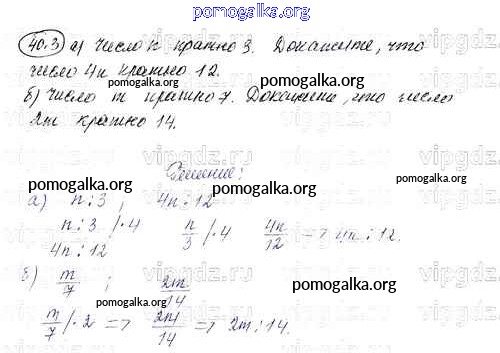 pomogalka.org
40.3 а) Число n кратно 3. Докажите, что
число 4n кратно 12.
б) Число m кратно 7. Докажите, что число
2m кратно 14.
Решение:
pomogalka.org pomogalka.org pomogalka.org
а) n ⋮ 3 , 4n ⋮ 12
n ⋮ 3 /· 4 n/3 /· 4 4n/12 => 4n ⋮ 12.
4n ⋮ 12
б) m/7 ; 2m/14
pomogalka.org pomogalka.org
m/7 /· 2 => 2m/14 => 2m ⋮ 14.
pomogalka.org